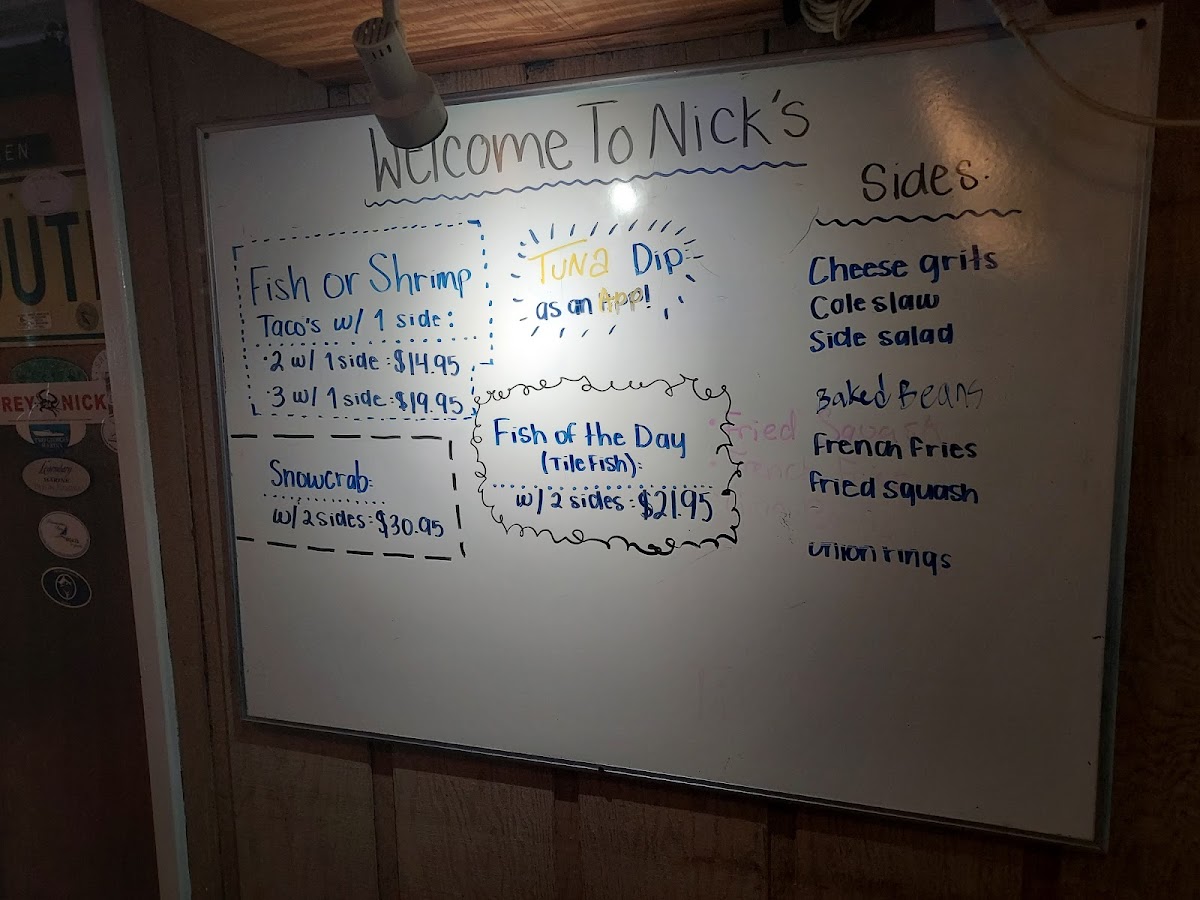 Welcome To Nick's
Fish or Shrimp
Taco's w/ 1 side:
·2 w/ 1 side:$14.95
·3 w/ 1 side:$19.95
Snowcrab:
w/ 2 sides:$30.95
Tuna Dip
as an App!
Fish of the Day
(TileFish):
w/ 2 sides:$21.95
Sides:
Cheese grits
Coleslaw
Side salad
Baked Beans
French Fries
Fried squash
onion rings
• Fried Squash
• French
EN
OUT
REY NICK